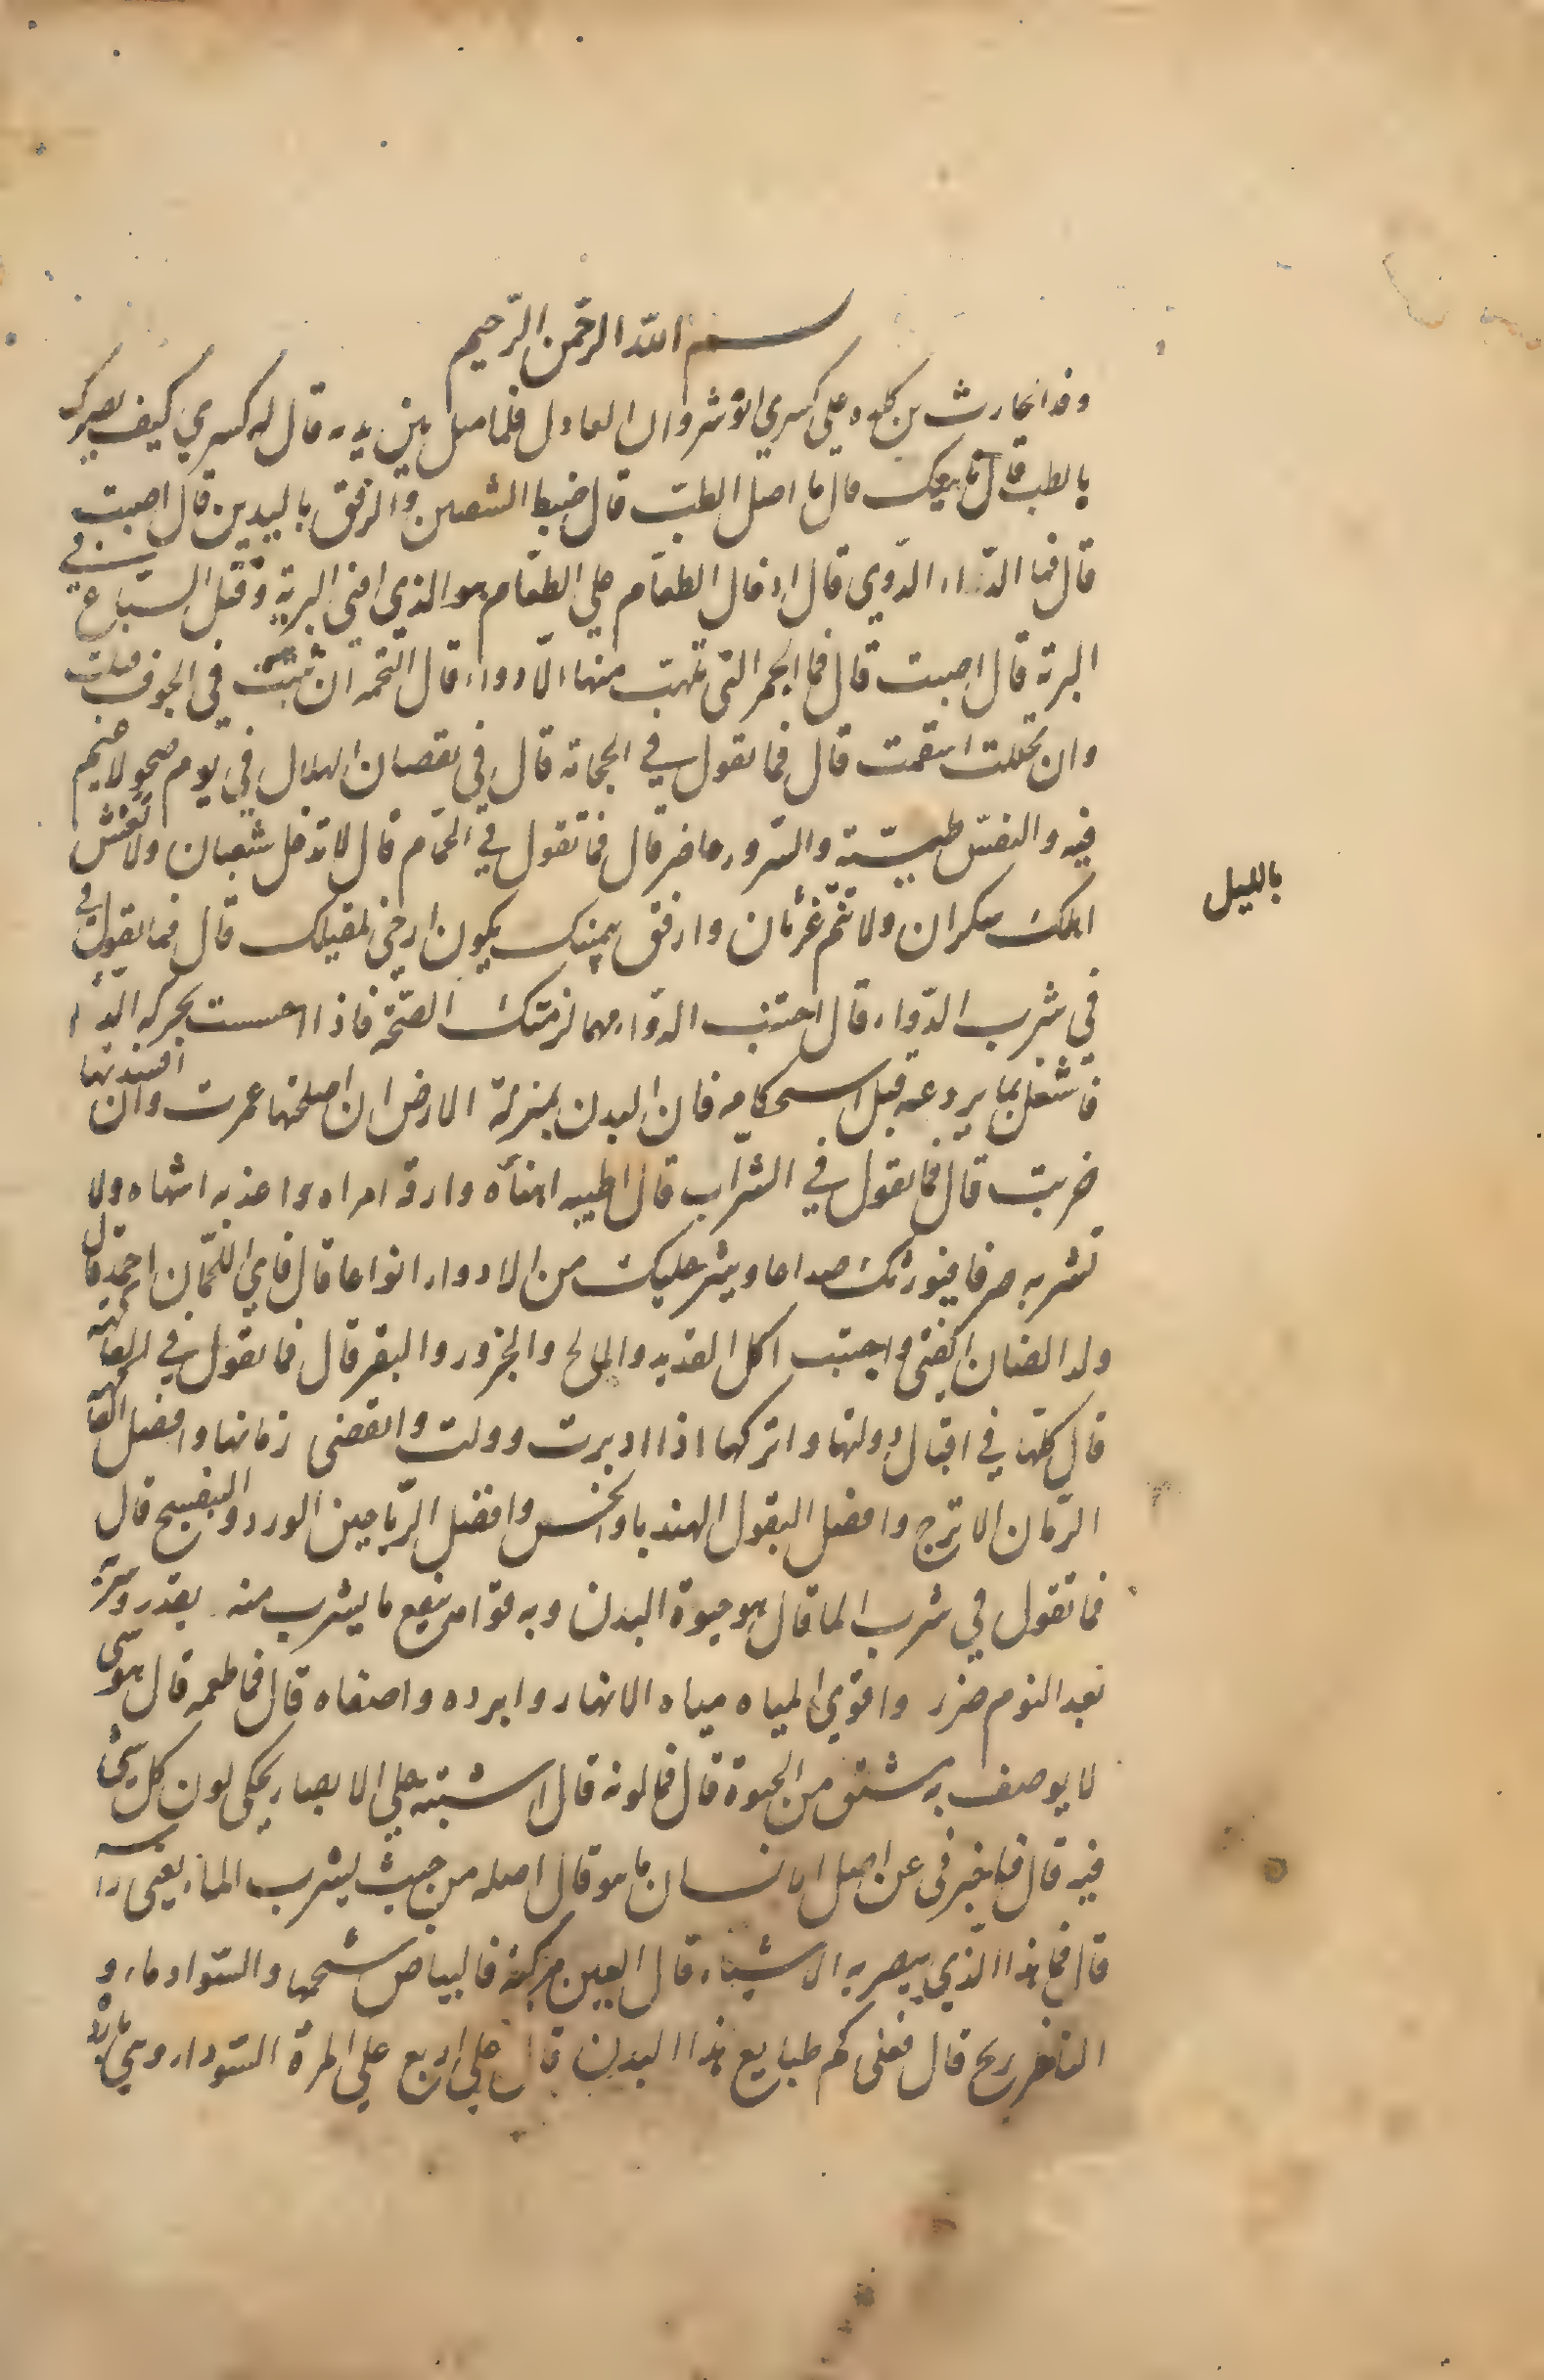 بسم الله الرحمن الرحيم
وفد الحارث بن كلده على كسري انوشروان العادل فلما مثل بين يديه قال له كسري كيف بصرك
بالطب قال ناهيك قال ما اصل الطب قال ضبط الشفتين والرفق باليدين قال اصبت
قال فما الداء الدوي قال ادخال الطعام علي الطعام هو الذي افنى البرية وقتل السباع في
البرية قال اصبت قال فما الجمر التي تلهب منها الادواء قال التخمه ان بقيت في الجوف قتلت
وان تحللت اسقمت قال فما تقول في الحجامة قال في نقصان الهلال في يوم صحو لا غيم
فيه والنفس طيبة والسرور حاضر قال فما تقول في الحمام قال لا تدخل شبعان ولا تغش
اهلك سكران ولا تنم غرثان وارفق بجسمك يكون ارخى لمقيلك قال فما تقول في
بالليل
في شرب الدواء قال اجتنب الدواء مهما لزمتك الصحة فاذا احسست بحركه الداء
فاشغلن بما يردعه قبل استحكامه فان البدن بمنزلة الارض ان اصلحتها عمرت وان افسدتها
خربت قال فما تقول في الشراب قال اطيبه اهنأه وارقه امراه واعذبه اشهاه ولا
تشربه صرفا فيورثك صداعا ويثير عليك من الادواء انواعا قال فاي اللحمان احمد قال
ولد الضان الفتى واجتنب اكل القديد والمالح والجزور والبقر قال فما تقول في الفاكهة
قال كلها في اقبال دولتها واتركها اذا ادبرت وولت وانقضى زمانها وافضل الفاكهة
الرمان الاترج وافضل البقول الهندبا والخس وافضل الرياحين الورد والبنفسج قال
فما تقول في شرب الما قال هو حيوة البدن وبه قوامه ينفع ما يشرب منه بقدر وشربه
بعد النوم ضرر واقوي المياه مياه الانهار وابرده واصفاه قال فما طعمه قال هو شى
لا يوصف به مشتق من الحيوة قال فما لونه قال اشتبه علي الابصار يحكى لون كل شى
فيه قال فاخبرنى عن اصل الانسان ما هو قال اصله من حيث يشرب الماء يعني راسه
قال فما هذا الذي يبصر به الاشياء قال العين مركبة فالبياض شحمها والسواد ماء و
الناظر ريح قال فعلى كم طبايع هذا البدن قال علي اربع علي المرة السوداء وهي باردة